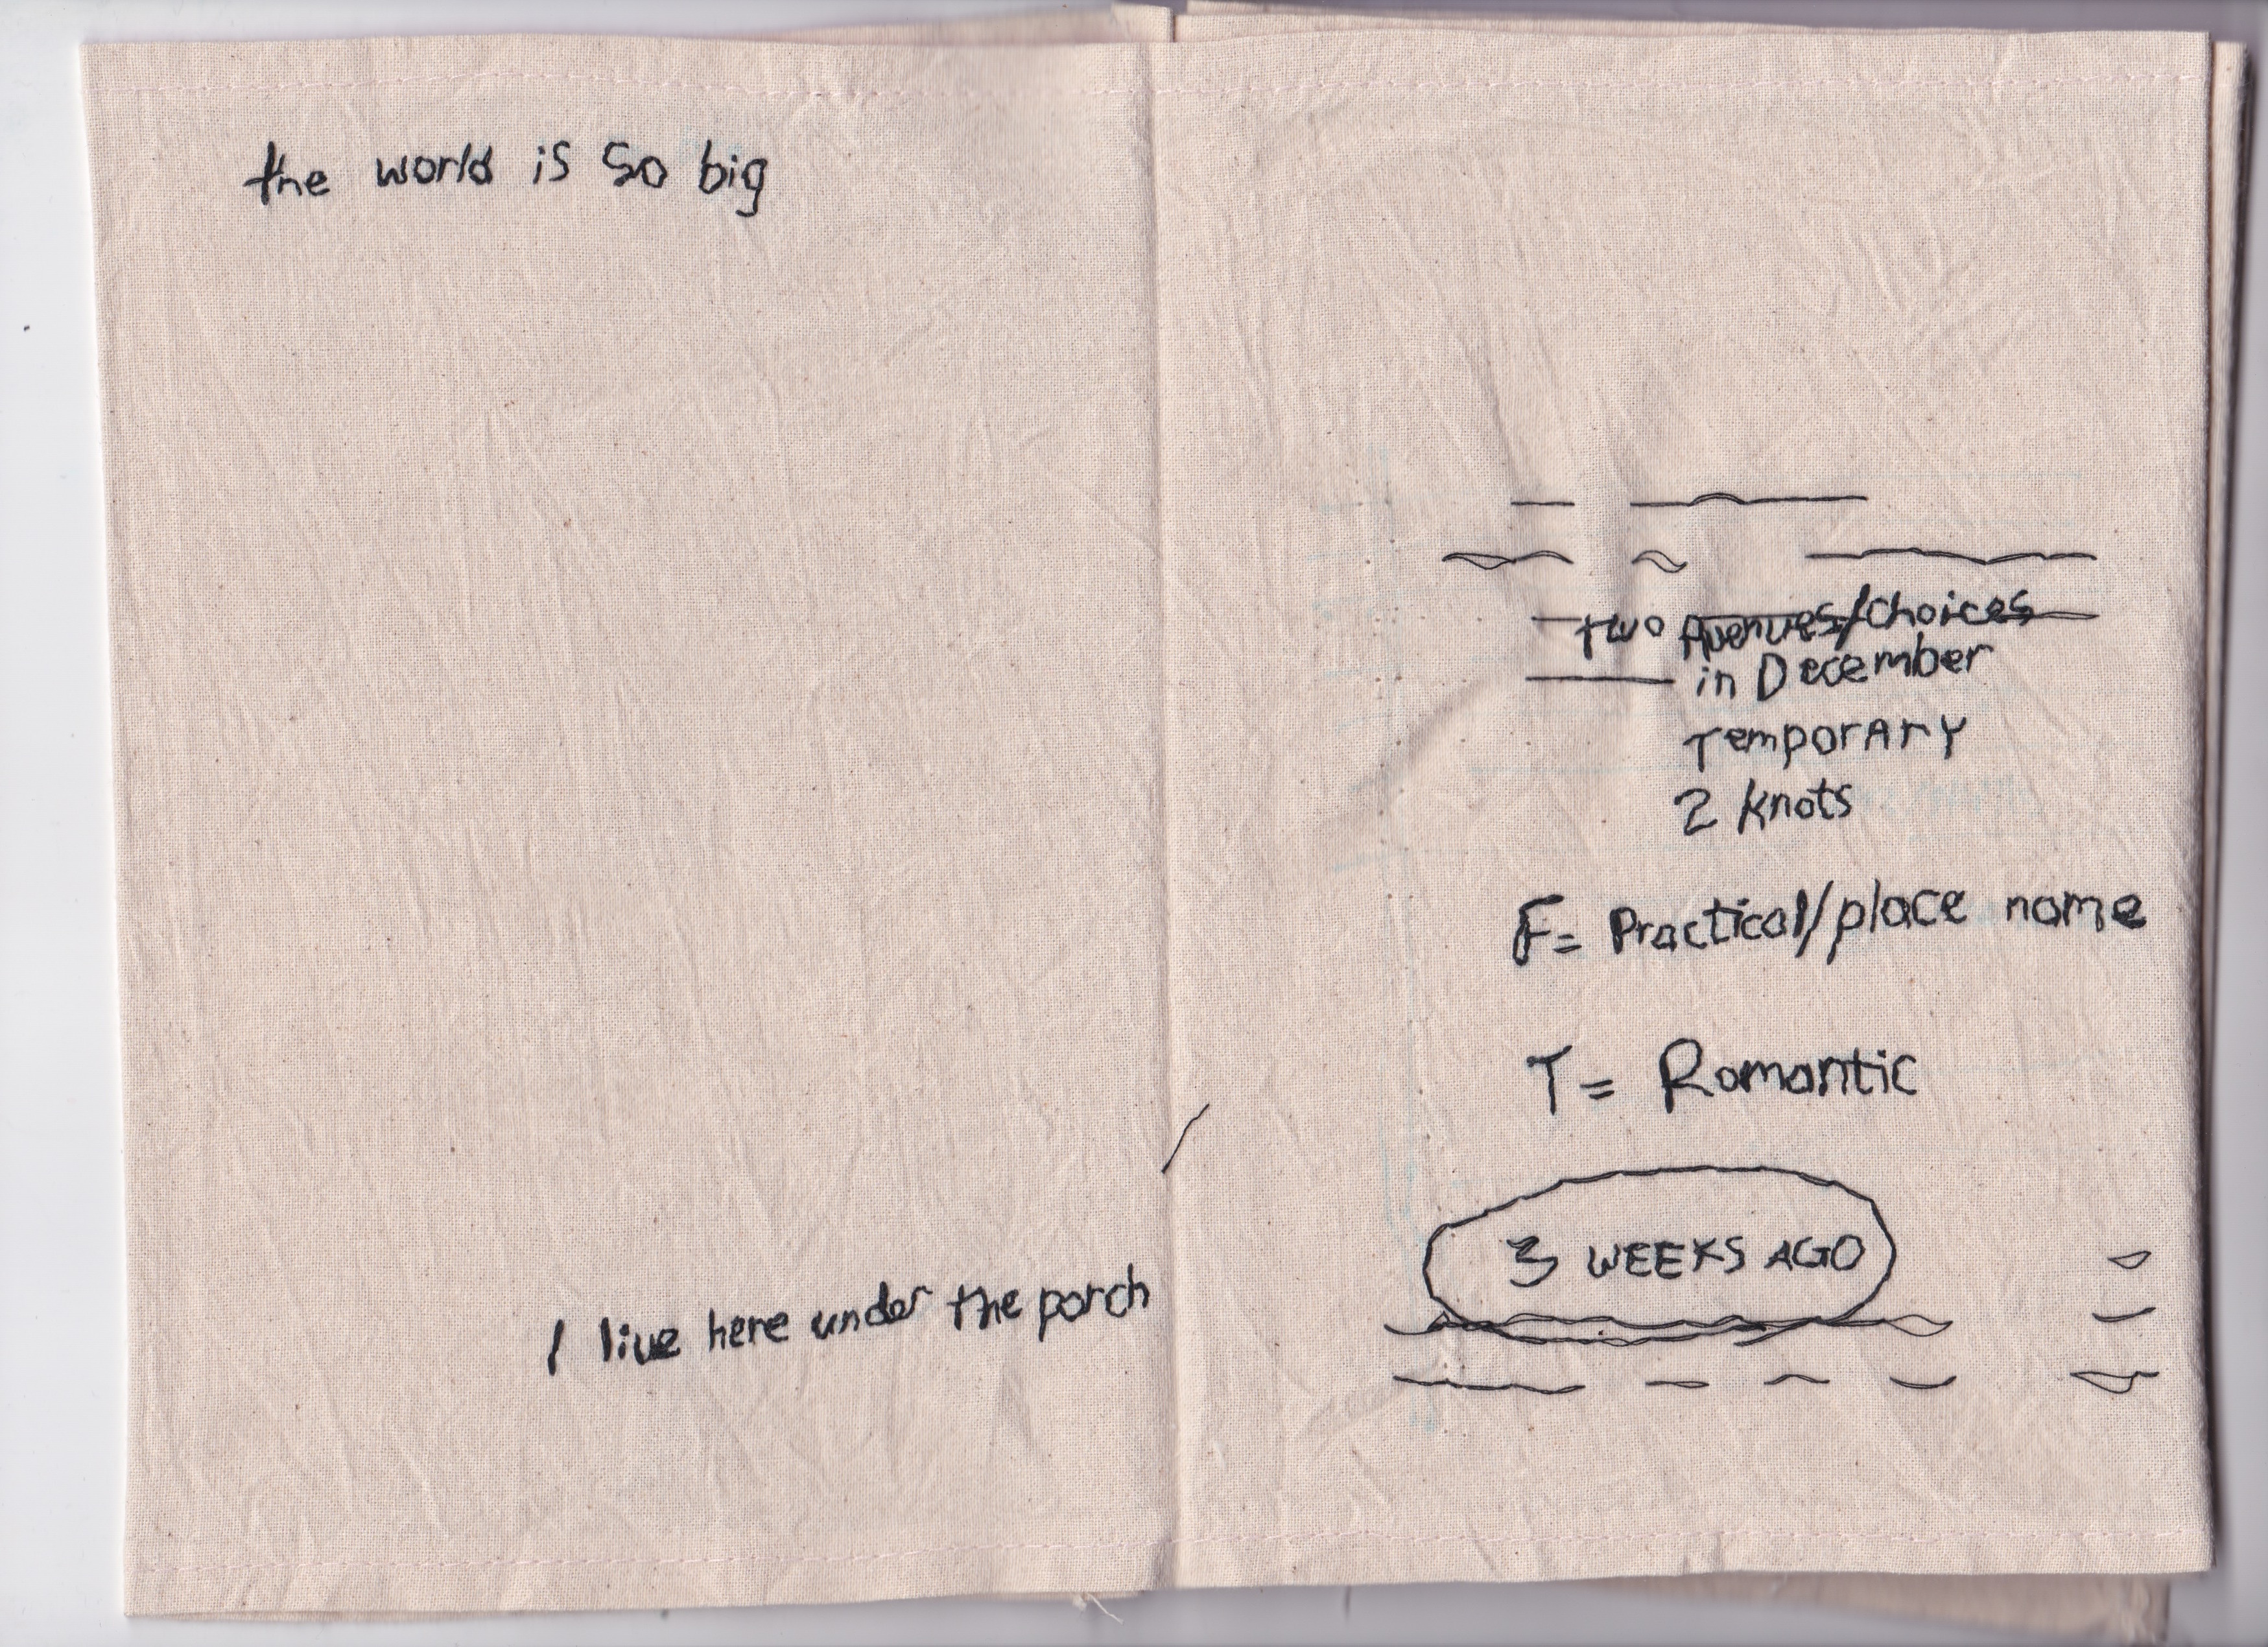 the world is so big
I live here under the porch
two Avenues/choices
in December
TemporArY
2 knots
F= Practical/place name
T= Romantic
3 WEEKS AGO